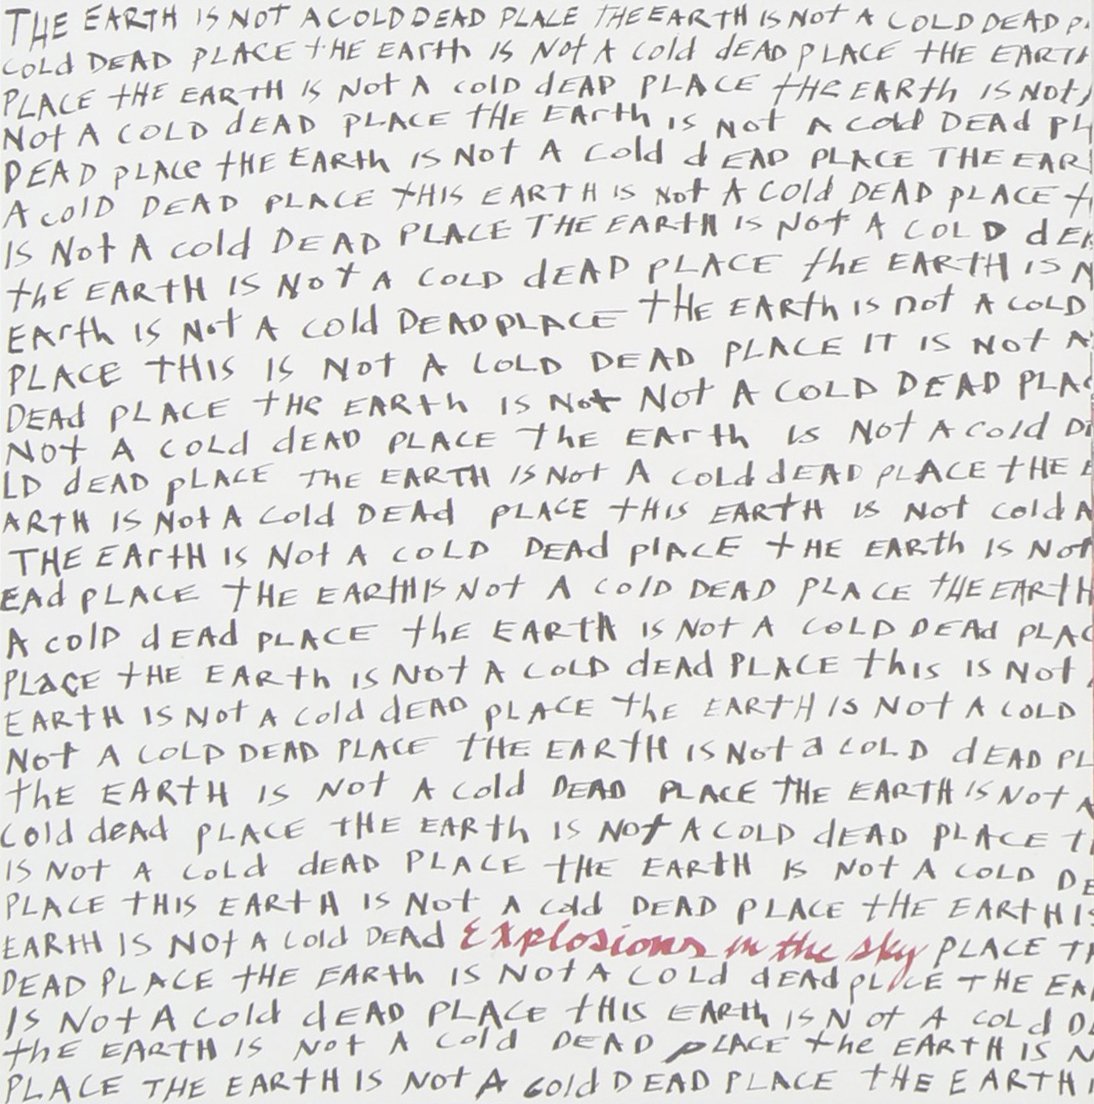 THE EARTH IS NOT A COLD DEAD PLACE THE EARTH IS NOT A COLD DEAD P
COLd DEAD PLACE tHE EARth IS NOt A Cold dEAD PLACE tHE EARTH
PLACE tHE EARTH IS NOt A COLD dEAD PLACE tHE EARth IS NOt
NOt A COLD dEAD PLACE tHE EArth IS NOt A Cold DEAd PL
DEAD pLACe tHE EARth IS NOt A Cold dEAD PLACE THE EAR
A COlD DEAD PLACE tHIS EARTH IS NOt A COld DEAD PLACE t
IS NOt A cold DEAD PLACE THE EARtH IS NOt A COLD dEA
thE EARTH IS NOT A COLD dEAD PLACE thE EARTH IS N
EArth IS NOt A cold DEAD PLACE tHE EARth IS nOt A COLD
PLACE tHIS IS NOt A COLD DEAD PLACE IT IS NOt A
DEAd PLACE tHe EARth IS NOt NOt A COLD DEAD PLAC
NOt A COLd dEAD PLACE thE EARth IS NOt A Cold D
LD dEAD pLACE THE EARTH IS NOt A COLd dEAD PLACE tHE E
ARTH IS NOt A Cold DEAd PLACE tHIS EARtH IS NOt cold A
THE EArtH IS NOt A COLD DEAd plACE tHE EARth IS NOt
EAd PLACE tHE EARtH IS NOt A COlD DEAD PLACE tHE EARtH
A COlD dEAd PLACE thE EARTH IS NOt A COLD DEAd PLAC
PLaCE tHE EARth IS NOt A COLD dEAd PLACE this IS NOt
EARTH IS NOt A Cold dEAD PLACE thE EARTH IS NOt A COLD
NOt A COLD DEAD PLACE tHE EARtH IS NOt a COLD dEAD PL
thE EARtH IS NOt A Cold DEAD PLACE THE EARTH IS NOt A
Cold deAd PLACE tHE EARth IS NOt A COLD dEAD PLACE t
IS NOt A COLd dEAD PLACE tHE EARtH IS NOt A COLD DE
PLACE tHIS EARtH IS NOt A Cold DEAD PLACE tHE EARtH IS
EARtH IS NOt A Cold DEAD Explosions in the sky PLACE TH
DEAD PLACE tHE EARth IS NOt A COLD dEAd pLACE THE EA
IS NOt A Cold dEAD PLACE tHIS EARth IS NOt A COLd D
thE EARTH IS NOt A Cold DEAD pLACE the EARtH IS N
PLACE THE EARTH IS NOt A Cold DEAD PLACE tHE EARTH